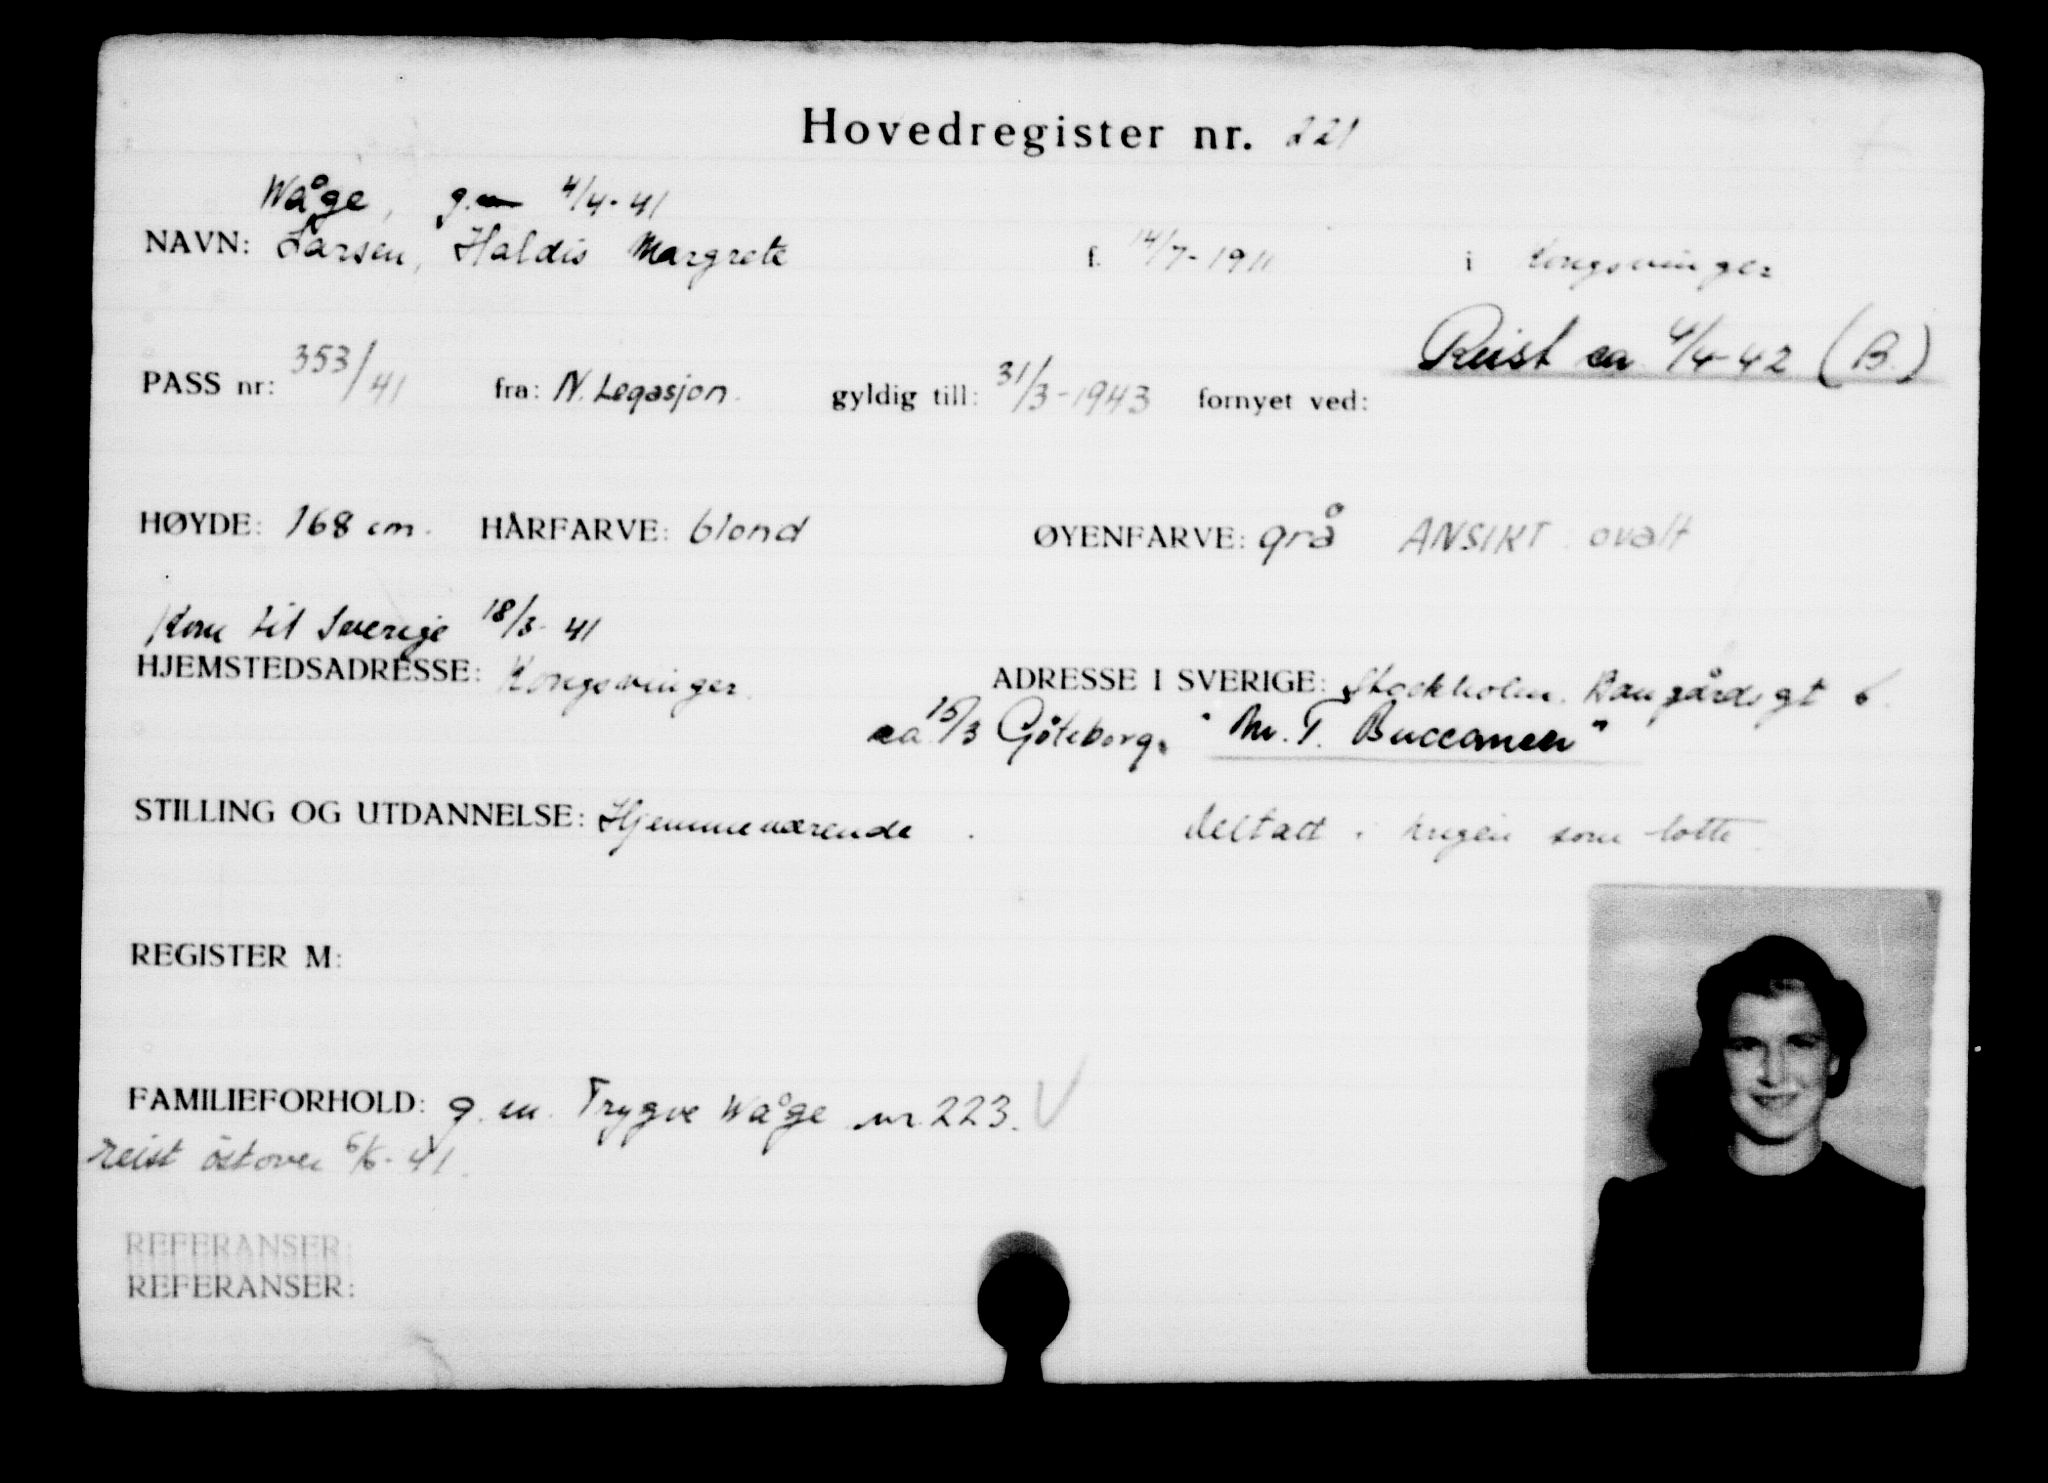 Hovedregister nr. 221
Wåge, g.m 4/4-41
NAVN: Larsen, Haldis Margrete f. 14/7-1911 i Kongsvinger
Reist ca 4/4-42 (B.)
PASS nr: 353/41 fra: N. Legasjon. gyldig till: 31/3-1943 fornyet ved:
HØYDE: 168 cm. HÅRFARVE: blond ØYENFARVE: grå ANSIKT: ovalt
Kom til Sverige 18/3-41
HJEMSTEDSADRESSE: Kongsvinger. ADRESSE I SVERIGE: Stockholm. 6.
ca 15/3 Göteborg. "M.T. Buccaneer"
STILLING OG UTDANNELSE: Hjemmeværende. deltatt i krigen som lotte.
REGISTER M:
FAMILIEFORHOLD: g.m. Trygve Wåge nr. 223. V
reist østover 6/6-41.
REFERANSER:
REFERANSER: